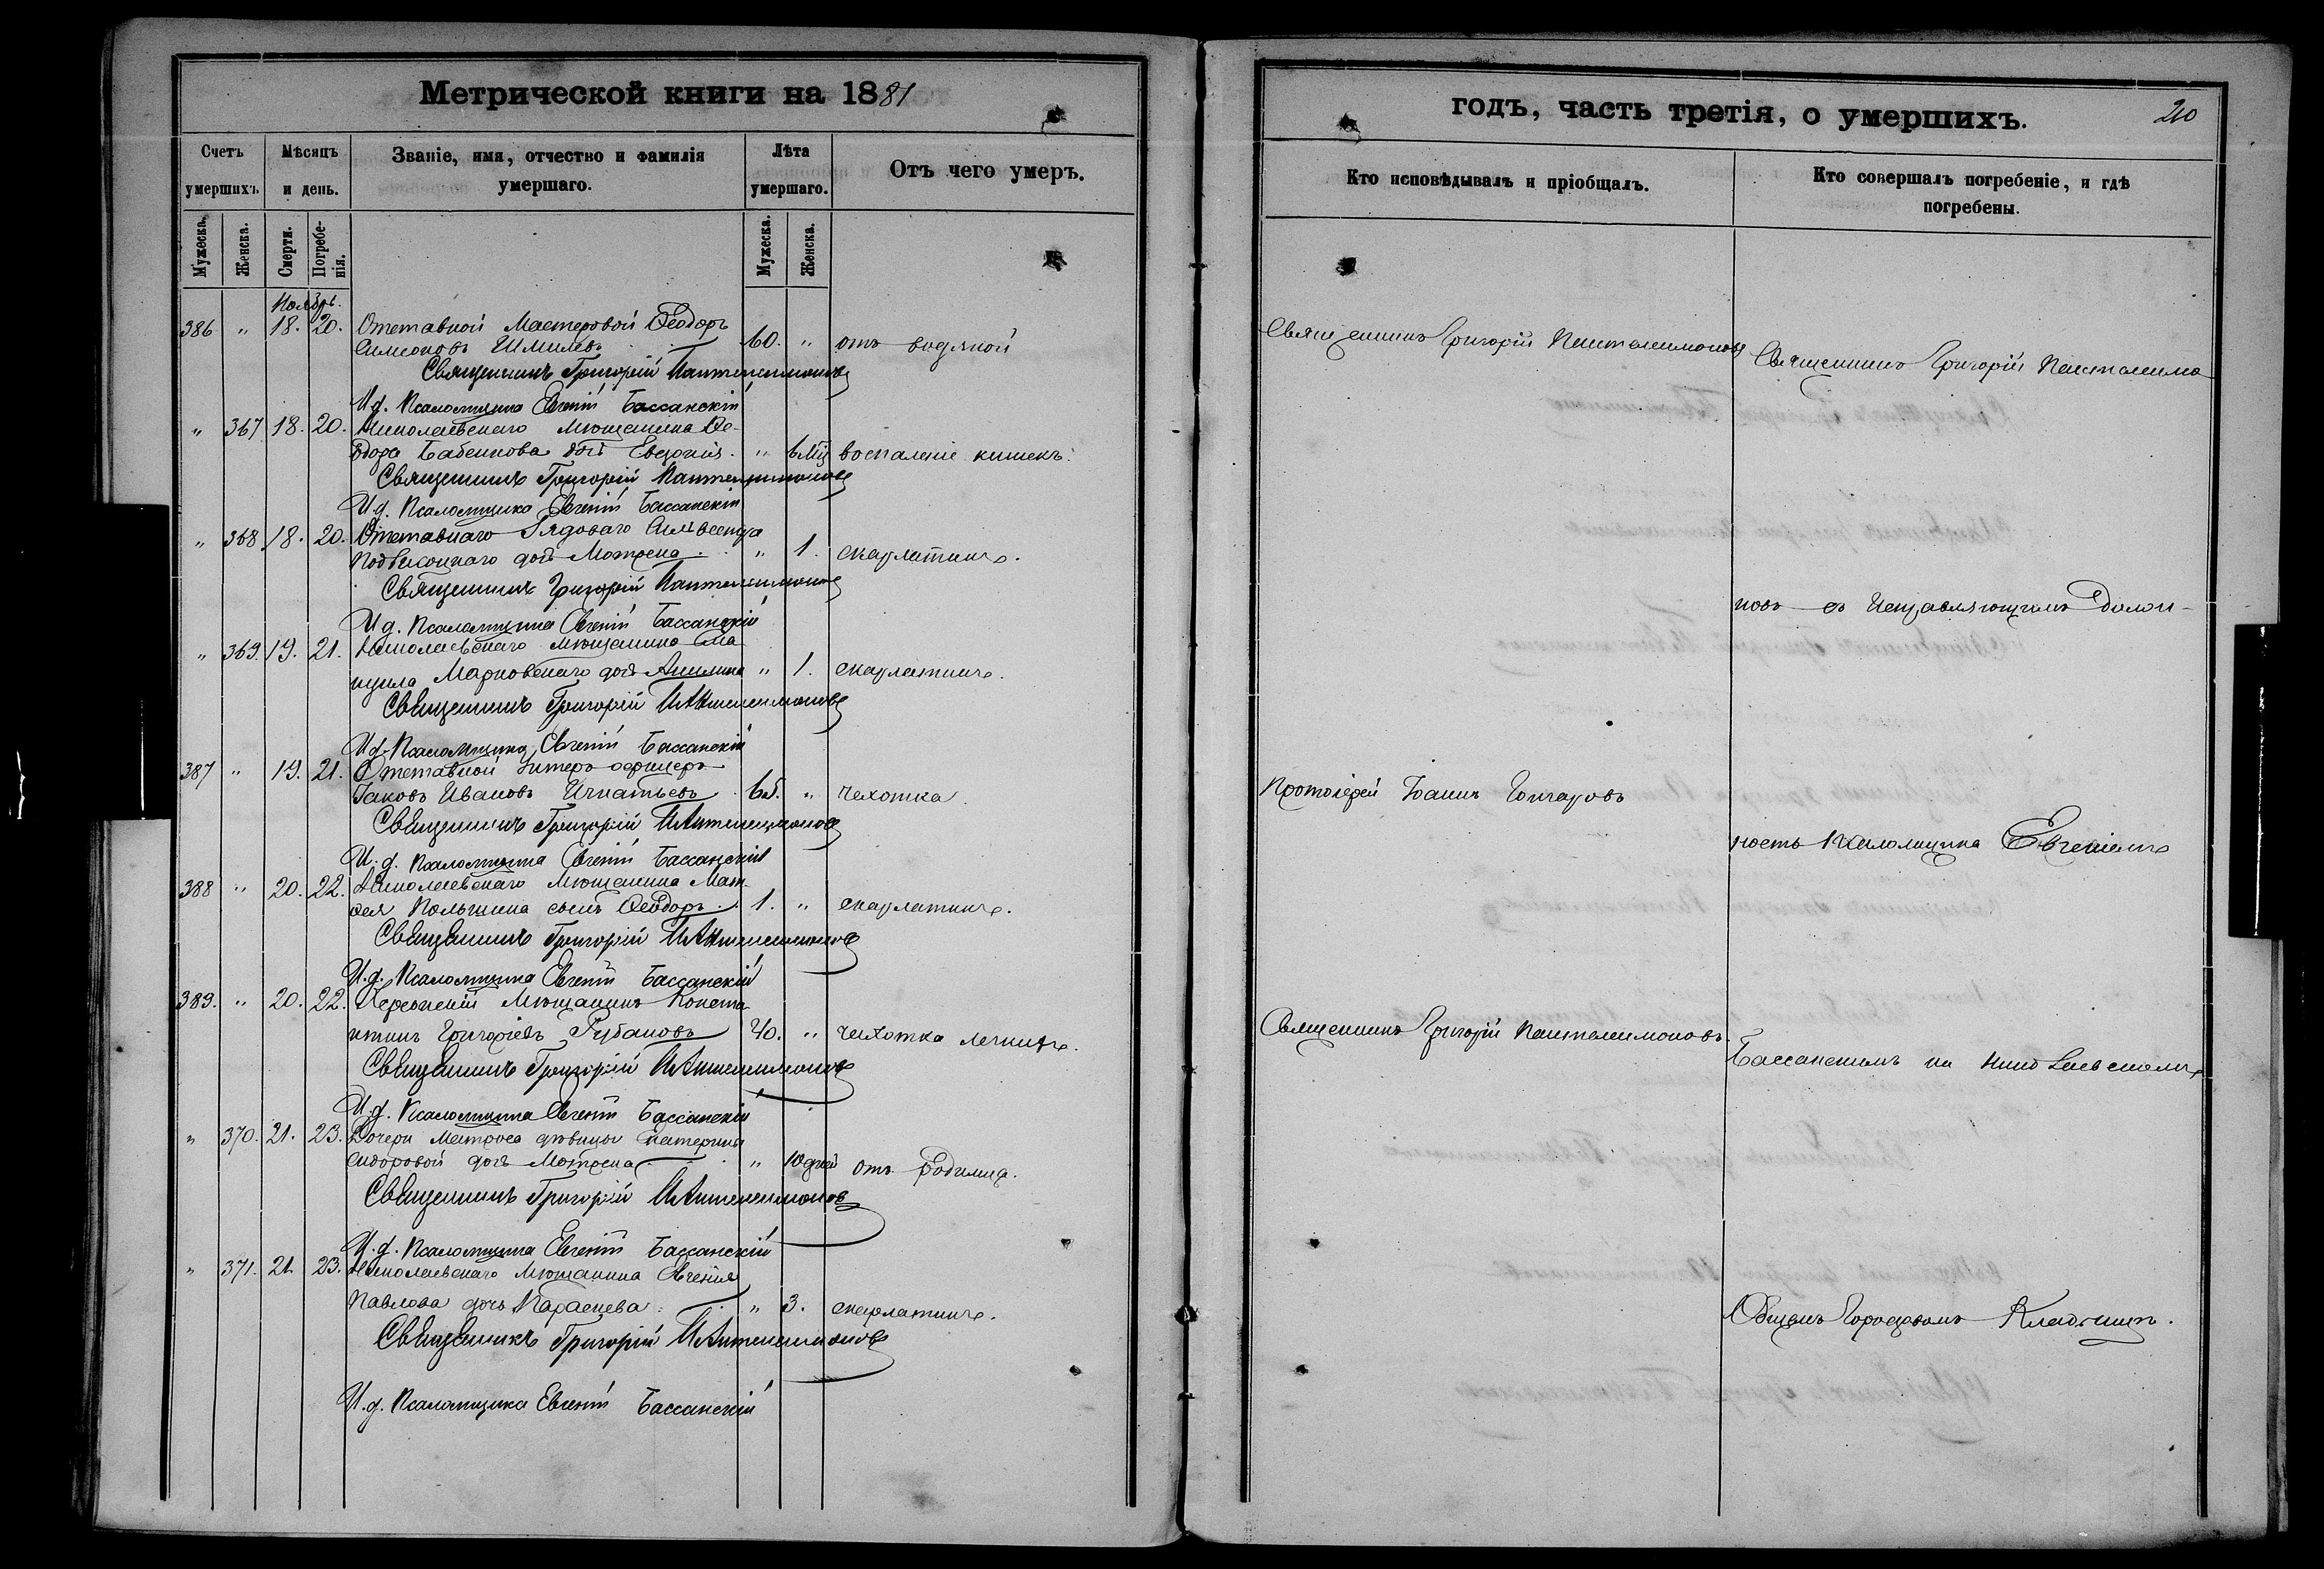 Метрической книги на 1881
Счетъ умершихъ.
Мѣсяцъ и день.
Званіе, имя, отчество и фамилія умершаго.
Лѣта умершаго.
Отъ чего умеръ.
Мужеска.
Женска.
Смерти.
Погребенія.
Мужеска.
Женска.
Ноябрь.
386 " 18. 20. Отставной Мастеровой Ѳеодоръ
Симеоновъ 60. " отъ водяной
Священникъ Григорій Пантелеимоновъ
И. д. Псаломщика Евгеній Бассанскій
" 367 18. 20. Николаевскаго Мѣщанина Ѳе-
одора Бабенкова доч Евдокія. " 6 мц воспаленіе кишекъ.
Священникъ Григорій Пантелеимоновъ
И. д. Псаломщика Евгеній Бассанскій
" 368 18. 20. Отставнаго Рядоваго Сильвестра
дочь Мотрона " 1. скарлатины.
Священникъ Григорій Пантелеимоновъ
И. д. Псаломщика Евгеній Бассанскій
" 369. 19. 21. Николаевскаго мѣщанина
Марковскаго дочь Акилина " 1. скарлатины.
Священникъ Григорій Пантелеимоновъ
И. д. Псаломщика Евгеній Бассанскій
387 " 19. 21. Отставной Унтеръ-офицеръ
Іаковъ Ивановъ Игнатьевъ 65. " чехотка.
Священникъ Григорій Пантелеимоновъ
И. д. Псаломщика Евгеній Бассанскій
388 " 20. 22. Николаевскаго Мѣщанина Мат-
ѳея сынъ Ѳеодоръ 1. " скарлатины.
Священникъ Григорій Пантелеимоновъ
И. д. Псаломщика Евгеній Бассанскій
389. " 20. 22. Херсонскій Мѣщанинъ Конста-
нтинъ Григоріевъ Рубановъ 40. " чехотка легкихъ.
Священникъ Григорій Пантелеимоновъ
И. д. Псаломщика Евгеній Бассанскій
" 370. 21. 23. Дочери Матроса дѣвицы Екатерины
Сидоровой дочь Мотрона " 10 дней отъ родимца.
Священникъ Григорій Пантелеимоновъ
И. д. Псаломщика Евгеній Бассанскій
" 371. 21. 23. Николаевскаго Мѣщанина Евгенія
Павлова дочь " 3. скарлатины.
Священникъ Григорій Пантелеимоновъ
И. д. Псаломщика Евгеній Бассанскій
годъ, часть третія, о умершихъ.
210
Кто исповѣдывалъ и пріобщалъ.
Кто совершалъ погребеніе, и гдѣ погребены.
Священникъ Григорій Пантелеимоновъ
Протоіерей Іоаннъ Гончаровъ
Священникъ Григорій Пантелеимоновъ.
Священникъ Григорій Пантелеимо
новъ съ Исправляющимъ Долж-
ность Псаломщика Евгеніемъ
Бассанскимъ на Николаевскомъ
Общемъ Городскомъ Кладбищѣ.